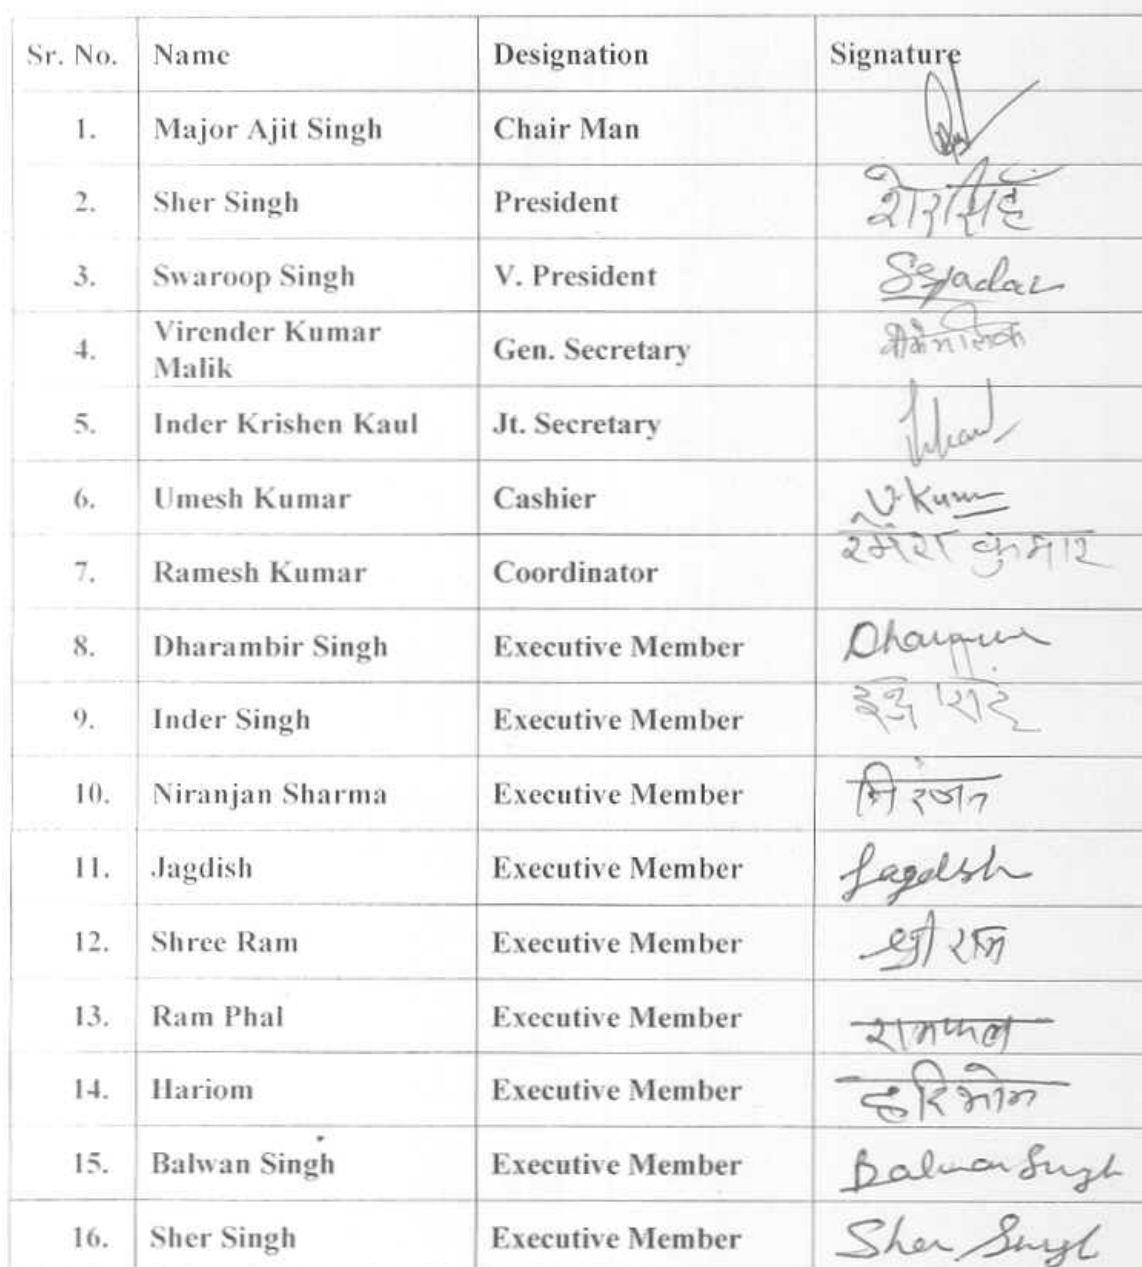 Sr. No. Name Designation Signature
1. Major Ajit Singh Chair Man
2. Sher Singh President शेरसिंह
3. Swaroop Singh V. President SSyadav
4. Virender Kumar Malik Gen. Secretary वीके मलिक
5. Inder Krishen Kaul Jt. Secretary
6. Umesh Kumar Cashier U.Kumar
7. Ramesh Kumar Coordinator रमेश कुमार
8. Dharambir Singh Executive Member
9. Inder Singh Executive Member इंद्र सिंह
10. Niranjan Sharma Executive Member निरंजन
11. Jagdish Executive Member Jagdish
12. Shree Ram Executive Member श्री राम
13. Ram Phal Executive Member रामफल
14. Hariom Executive Member हरिओम
15. Balwan Singh Executive Member Balwan Singh
16. Sher Singh Executive Member Sher Singh